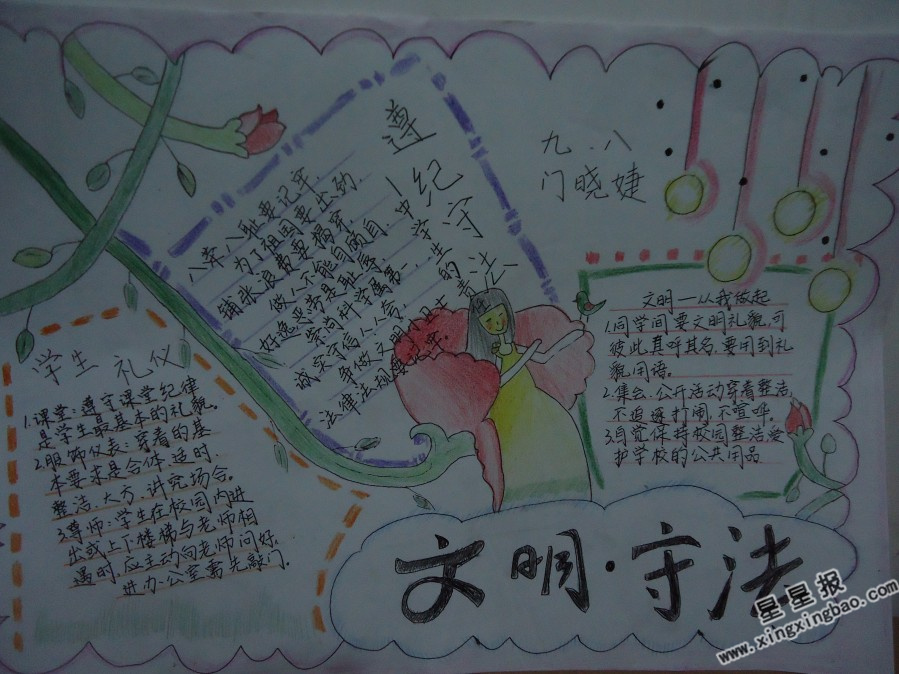 遵纪守法
中学生的责
八荣八耻要记牢.
为了祖国要出动.
铺张浪费要揭穿
做人不能自顾自.
好逸恶劳是耻辱.
崇尚科学属第一.
诚实守信人人夸.
争做文明小
法律法规
九.八
门晓婕
文明一从我做起
1.同学间要文明礼貌,可
彼此直呼其名.要用到礼
貌用语.
2.集会.公开活动穿着整洁
不追逐打闹,不宣呼.
3.自觉保持校园整洁,爱
护学校的公共用品
学生礼仪
1.课堂:遵守课堂纪律
是学生最基本的礼貌.
2.服饰仪表:穿着的基
本要求是合体.适时.
整洁.大方.讲究场合.
3.尊师:学生在校园内进
出或上下楼梯与老师相
遇时.应主动向老师问好.
进办公室需先敲门.
文明·守法
星星报
www.xingxingbao.com